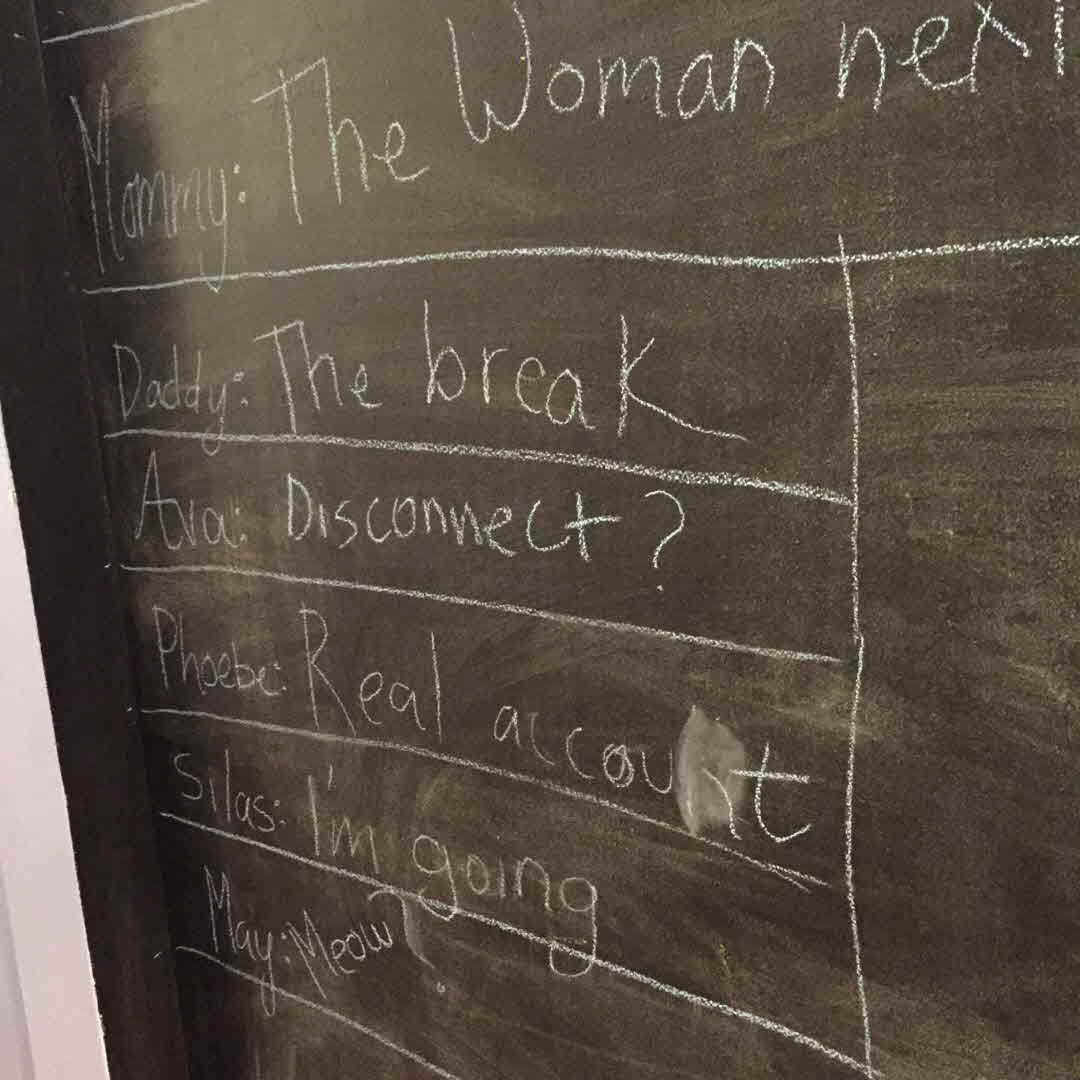 Mommy: The Woman next
Daddy: The break
Ava: Disconnect?
Phoebe: Real account
Silas: I'm going
May: Meow?